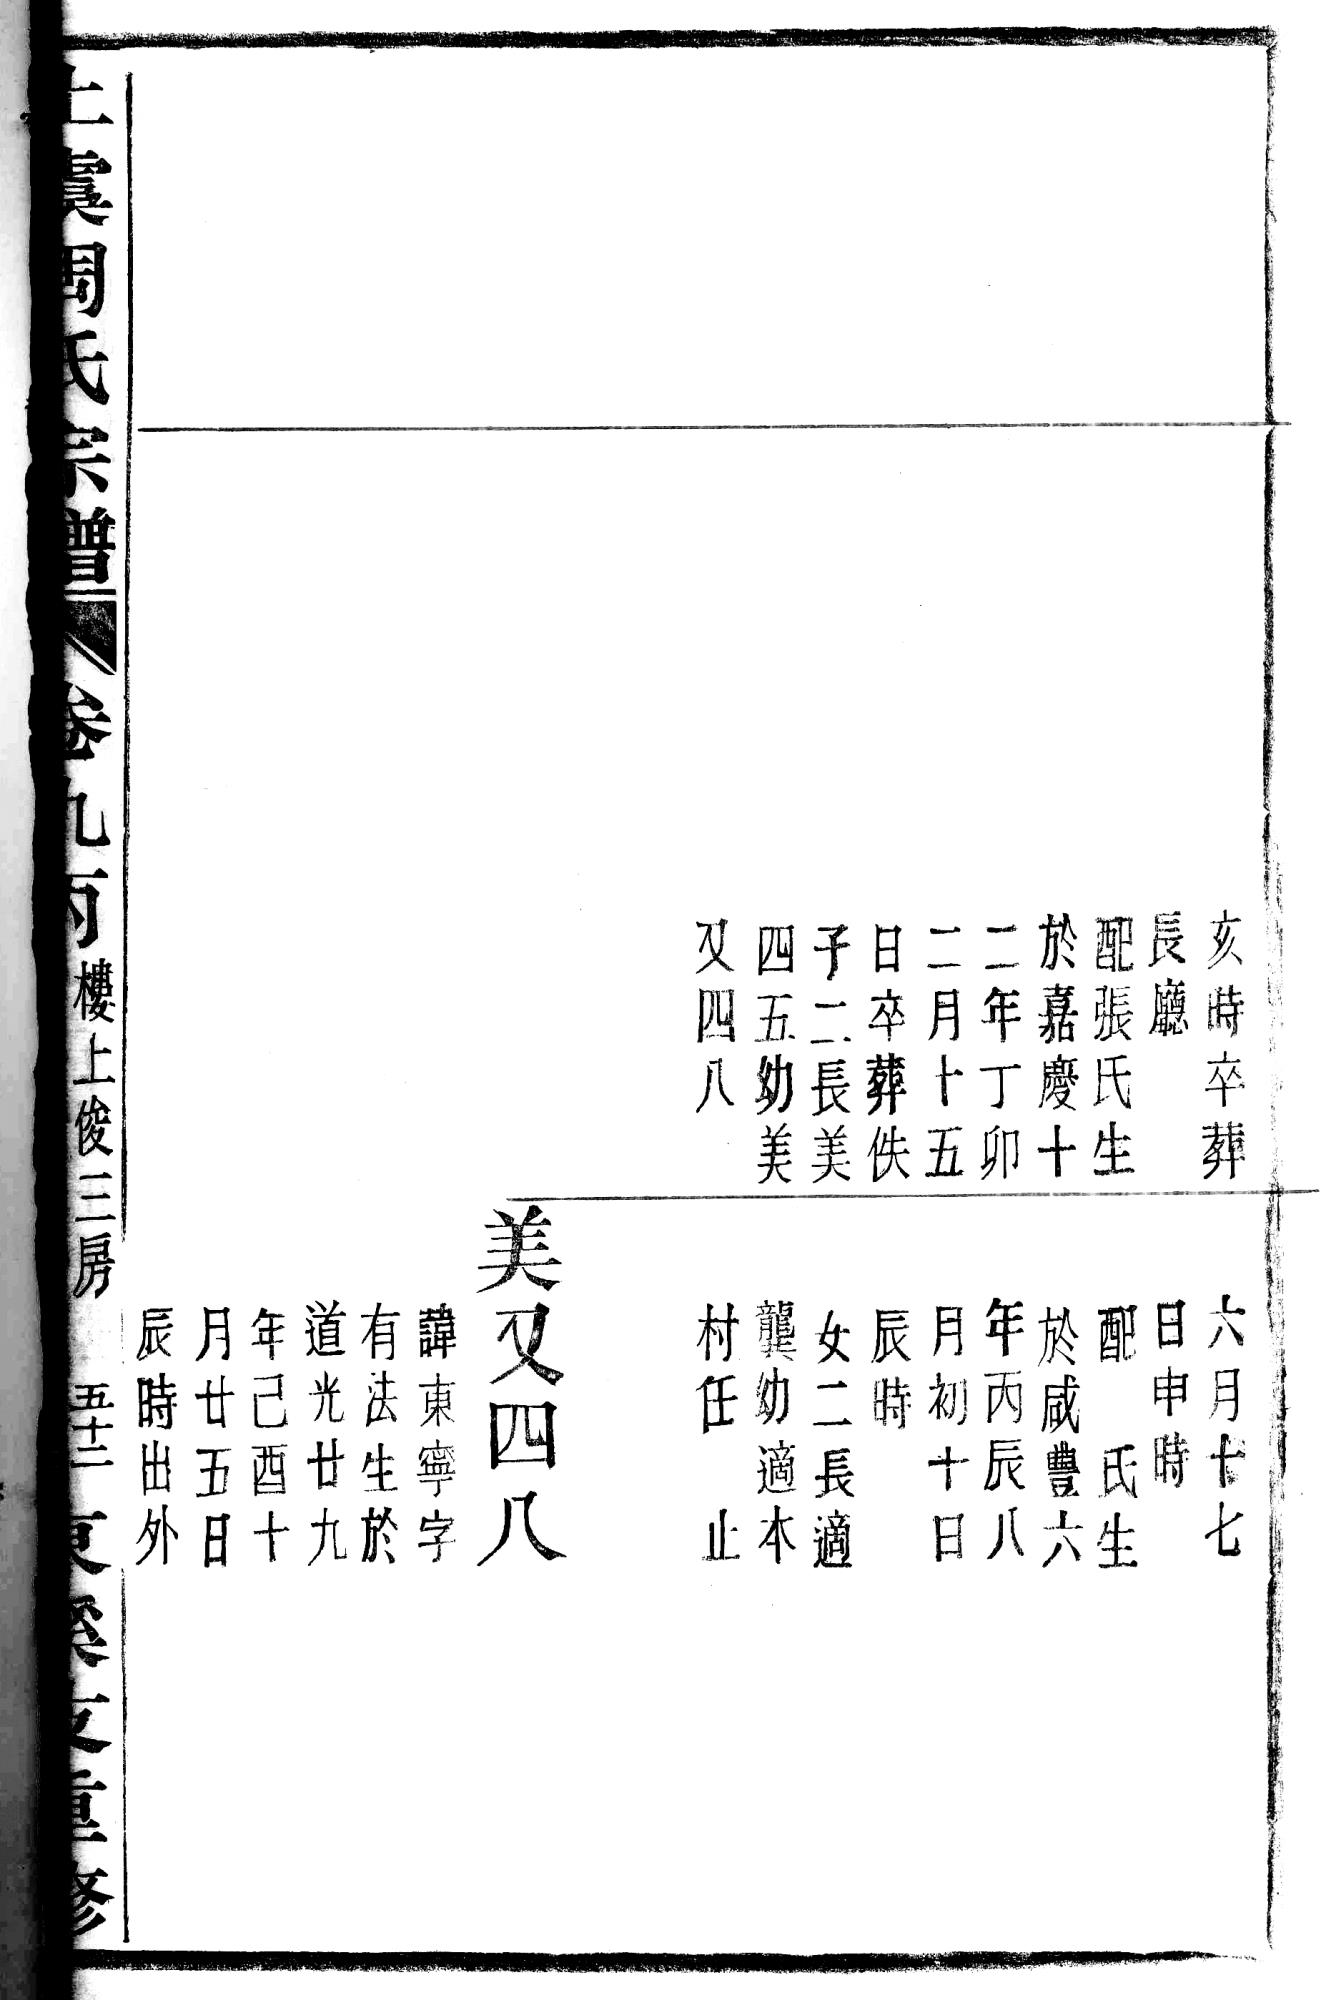 亥時卒葬
長廳
配張氏生
於嘉慶十
二年丁卯
二月十五
日卒葬佚
子二長美
四五幼美
又四八
六月十七
日申時
配　氏生
於咸豐六
年丙辰八
月初十日
辰時
女二長適
龔幼適本
村任　止
美又四八
諱東寧字
有法生於
道光廿九
年己酉十
月廿五日
辰時出外
上虞周氏宗譜
卷九丙樓上俊三房
五十二
東溪支重修